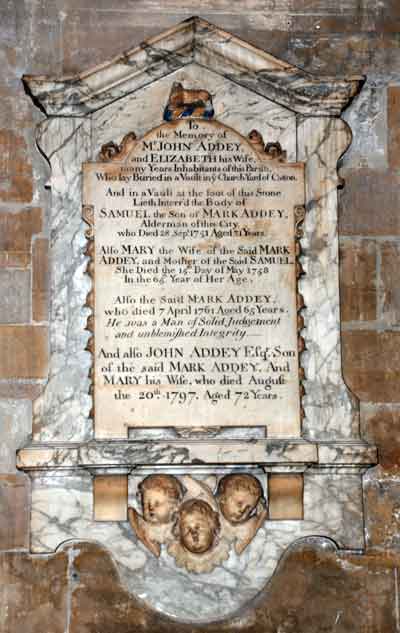 To
the Memory of
Mr. JOHN ADDEY,
and ELIZABETH his Wife,
many Years Inhabitants of this Parish,
Who lay Buried in a Vault in ye Church Yard of Caston.
And in a Vault at the foot of this Stone
Lieth Interr'd the Body of
SAMUEL the Son of MARK ADDEY,
Alderman of this City,
who Died 28 Sepr. 1751 Aged 21 Years.
Also MARY the Wife of the Said MARK
ADDEY, and Mother of the Said SAMUEL,
She Died the 15th. Day of May 1758
In the 65 Year of Her Age.
Also the Said MARK ADDEY,
who died 7 April 1761 Aged 65 Years.
He was a Man of Solid Judgement
and unblemished Integrity.
And also JOHN ADDEY Esqr. Son
of the said MARK ADDEY, And
MARY his Wife, who died August
the 20th. 1797, Aged 72 Years.